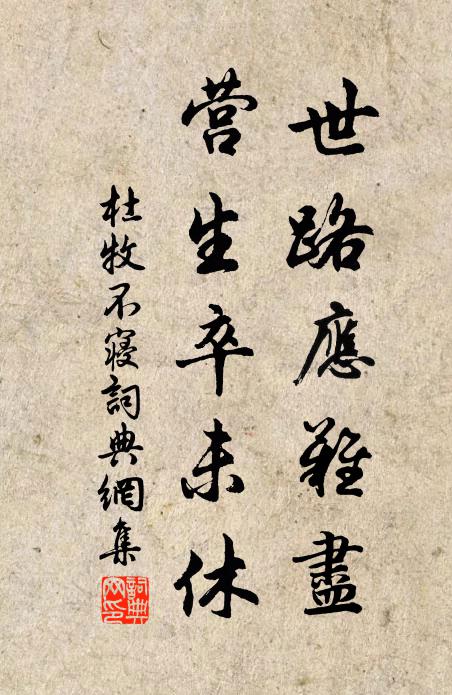 世路應難盡
营生卒未休
杜牧不寢詞典網集
詞典
网印